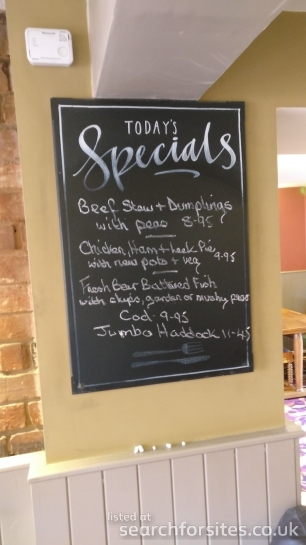 TODAY'S
Specials
Beef Stew + Dumplings
with peas 8-95
Chicken, Ham + Leek Pie
with new pots + veg 9-95
Fresh Beer Battered Fish
with chips, garden or mushy peas
Cod 9-95
Jumbo Haddock 11-45
listed at
searchforsites.co.uk